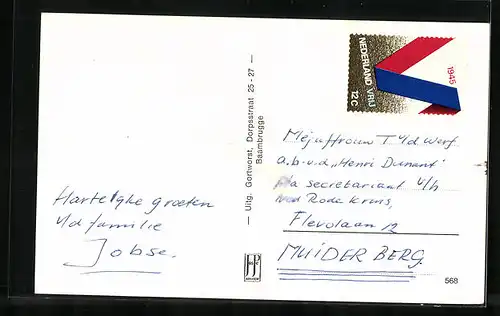 Hartelijke groeten
v/d familie
Jobse.
— Uitg. Gortvorst, Dorpsstraat 25 - 27 —
Baambrugge
NEDERLAND VRIJ
12 C
1945
Mejuffrouw T v/d Werf
a.b.v.d „Henri Dunant"
p/a secretariaat v/h
ned Rode Kruis,
Flevolaan 12
MUIDERBERG.
568